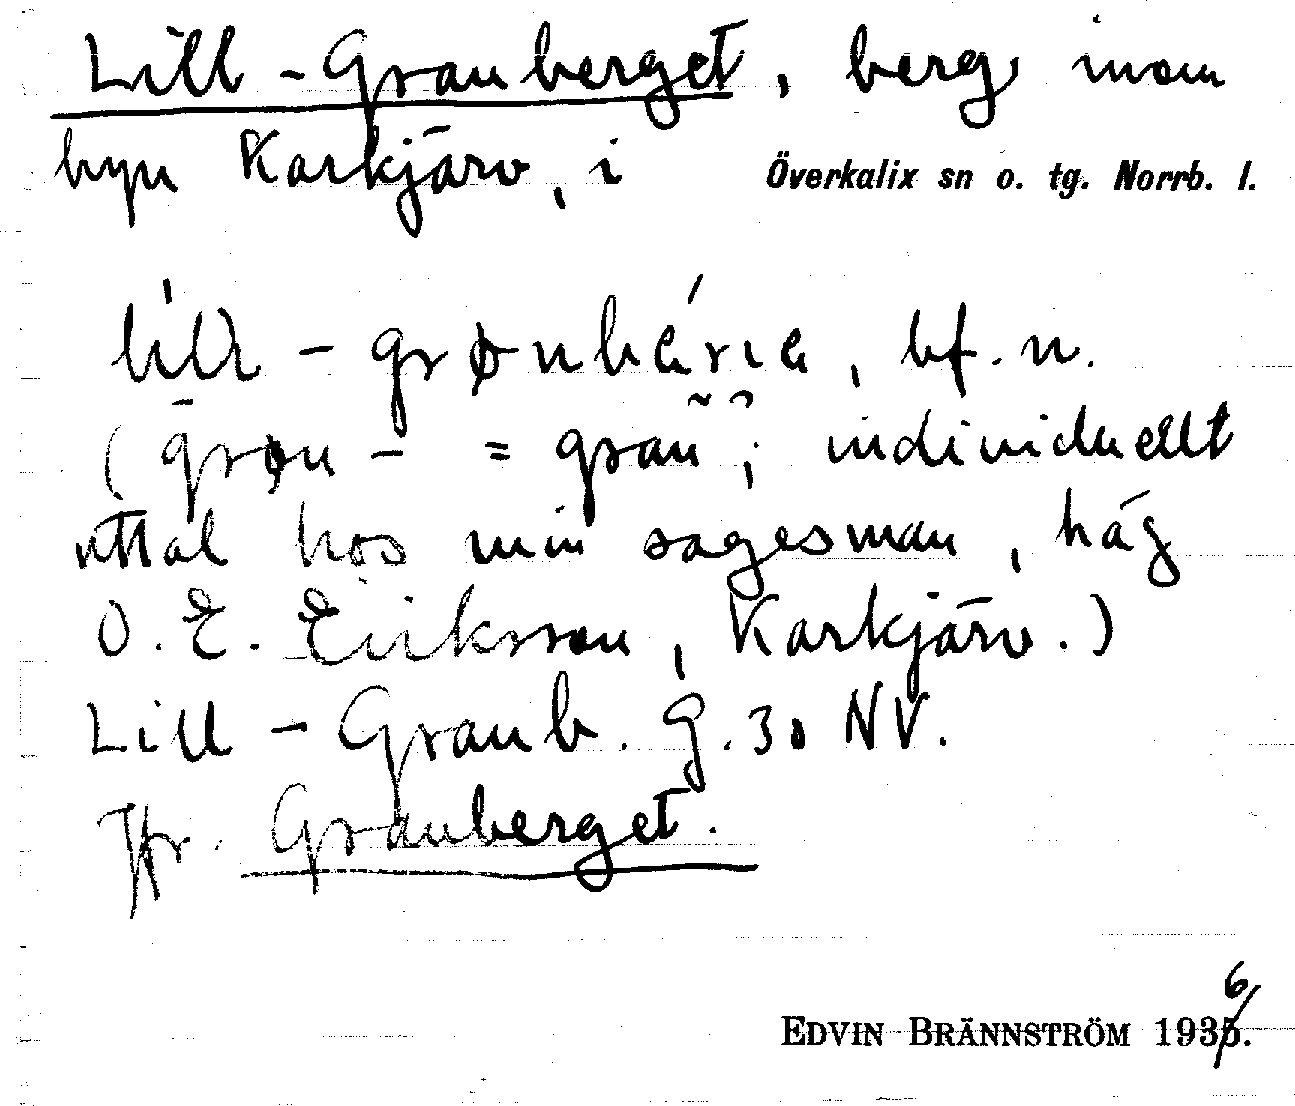 Lill-Granberget, berg inom
byn Karkjärv, i Överkalix sn o. tg. Norrb. l.
lill-grønbǽrıe, bf. n.
(grøn- = gran?; individuellt
uttal hos min sagesman, häg
O. E. Eriksson, Karkjärv.)
Lill-Granb. G. 30 NV.
Jfr. Granberget.
EDVIN BRÄNNSTRÖM 1936.